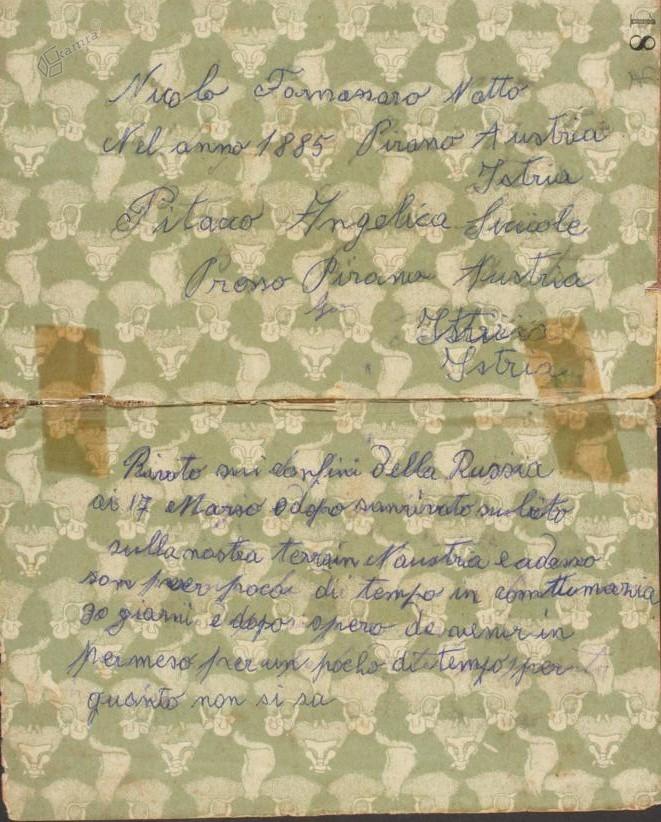 kamra
18
Nicolo Tomasaro Natto
Nel anno 1885 Pirano Austria
Istria
Pitaco Angelica Siciole
Preso Pirano Austria
Istria
Istria
Rivato sui confini della Russia
ai 17 Marso e dopo son rivato subito
sulla nostra terra in Naustria e adesso
son per poco di tempo in contumazia
30 giorni e dopo spero de venir in
permeso per un pocho di tempo per
quanto non si sa